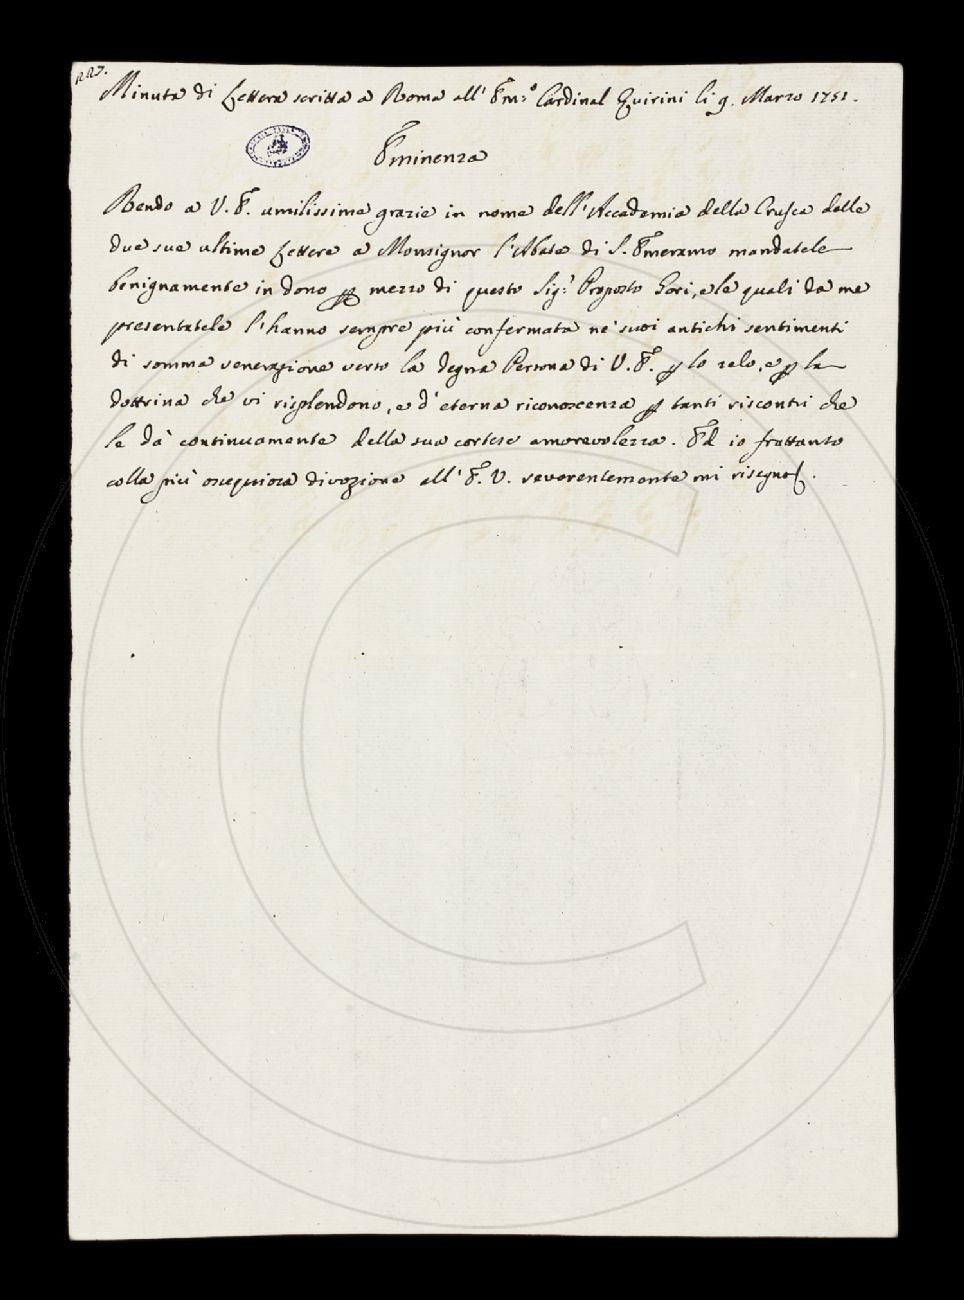 227.
Minuta di Lettera scritta a Roma all' Em:º Cardinal Quirini li 9. Marzo 1751.
Eminenza
Rendo a V. E. umilissime grazie in nome dell' Accademia della Crusca delle
due sue ultime Lettere a Monsignor l'Abate di S. Emeramo mandatele
benignamente in dono p mezzo di questo Sig.r Proposto Gori, e le quali da me
presentatele l'hanno sempre più confermata ne' suoi antichi sentimenti
di somma venerazione verso la degna Persona di V. E. p lo zelo, e p la
dottrina che vi risplendono, e d'eterna riconoscenza p tanti riscontri che
le dà continuamente della sua cortese amorevolezza. Ed io frattanto
colla più ossequiosa divozione all' E. V. reverentemente mi rasegno.